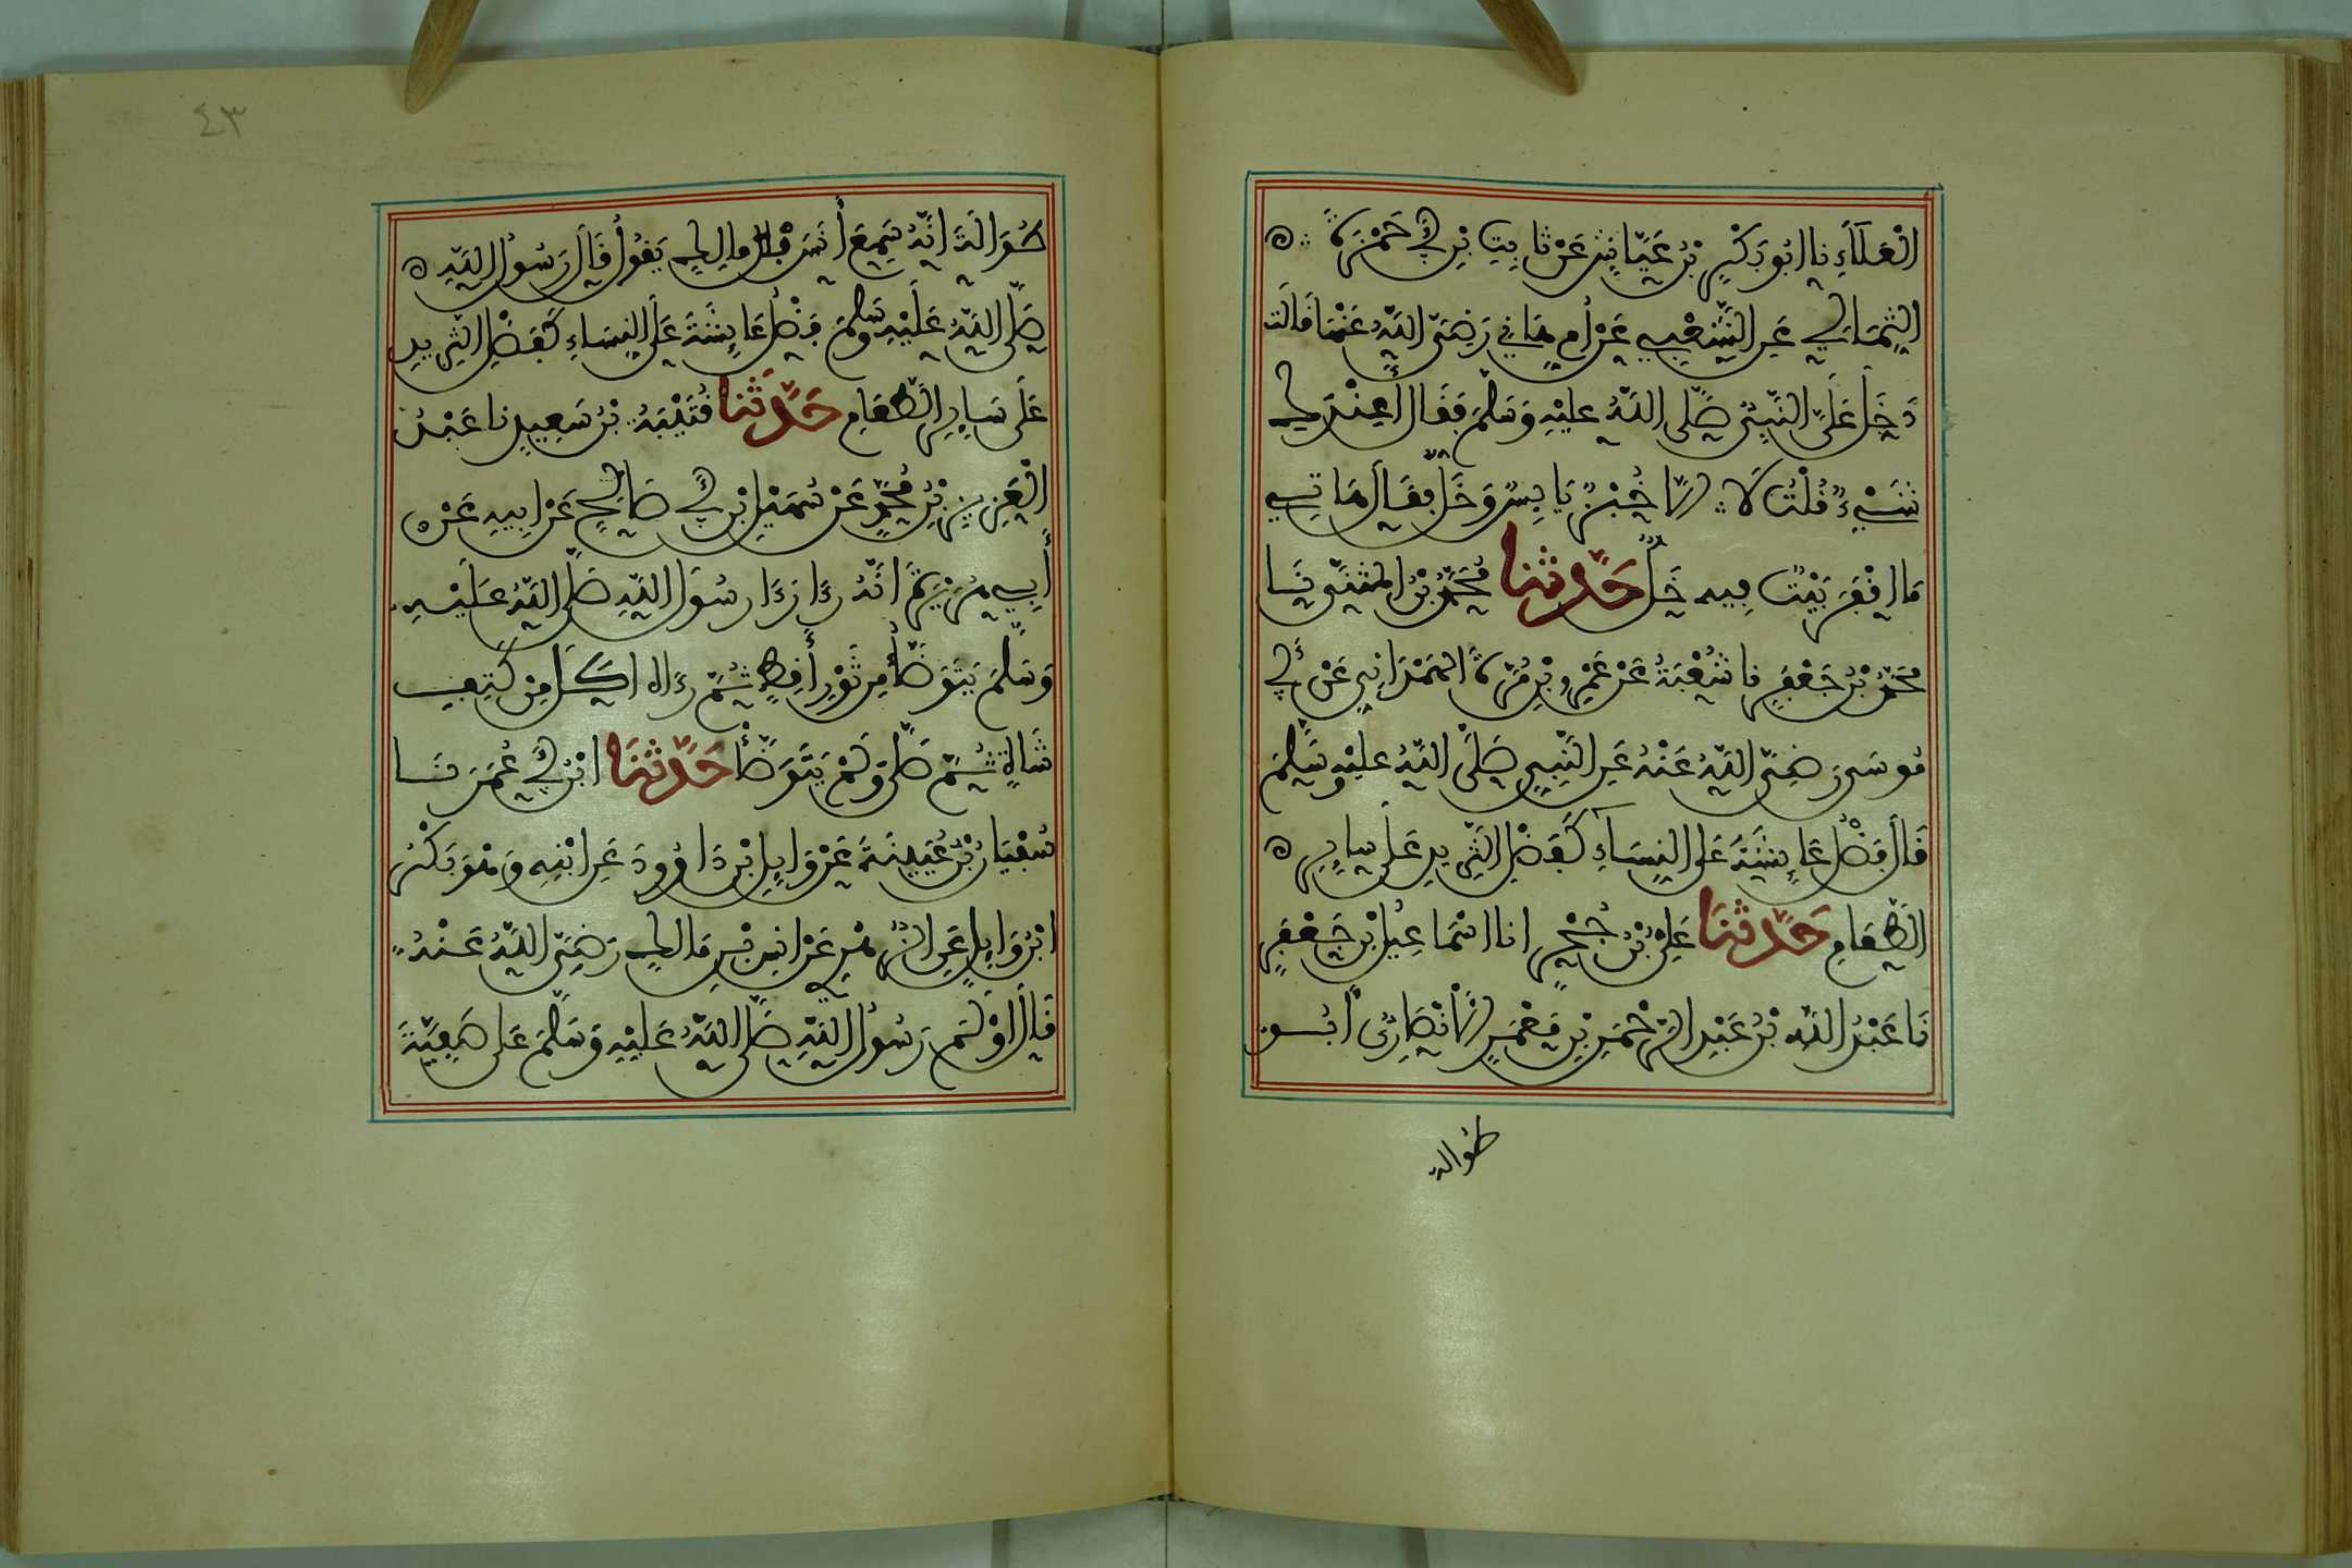 الْعَلَاءِ نا ابُو بَكْرِ بْنُ عَيَّاشٍ عَنْ ثابِتِ بْنِ أَبِي حَمْزَةَ
الثِّمَالِي عَنِ الشَّعْبِيِ عَنْ أُمِ هَانِي رَضِيَ اللَّهُ عَنْهَا قَالَت
دَخَلَ عَلَىَّ النَّبِيُّ صَلَّى اللَّهُ عليْهِ وَسَلَّمَ فَقَالَ أَعِنْدَكِ
شَيْءٌ قُلْتُ لَا إلَّا خُبْزٌ يَابِسٌ وَخَلٌّ فقَالَ هَاتِي
مَا اقْفَرَ بَيْتٌ فِيهِ خَلٌّ حَدَّثنا مُحَمَّدُ بْنُ المُثَنَّى نَا
مُحَمَّدُ بْنُ جَعْفَرٍ نا شُعْبَةُ عَنْ عَمْرِو بْنِ مُرَّةَ الهَمْدَانِي عَنْ أَبِي
مُوسَى رَضِيَ اللَّهُ عَنْهُ عَنِ النَّبِيِ صَلَّى اللَّهُ عليْهِ وَسَلَّمَ
قَالَ فَضْلُ عَائِشَةَ عَلَى النِسَاءِ كَفَضْلِ الثَّرِيدِ عَلَى سايِرِ
الطَّعَامِ حَدَّثنَا عَلِيُّ بْنُ حُجْرٍ انا اسْمَاعِيلُ بْنُ جَعْفَرٍ
نَا عَبْدُ اللَّه بْنُ عَبْدِ الرَّحْمَنِ بْنِ مَعْمَرٍ الأَنْصَارِيُّ أَبُو
طُوَالة
٤٣
طُوَالَةَ انَّهُ سَمِعَ أَنَسَ بْنَ مالِكٍ يَقُولُ قَالَ رَسُولُ اللَّهِ
صَلَّى اللَّهُ عَلَيْهِ وَسَلَّمَ فَضْلُ عَائِشَةَ عَلَى النِسَاءِ كَفَضْلِ الثَّرِيدِ
عَلَى سَايِرِ الطَّعَامِ حَدَّثَنا قُتَيْبَةُ بْنُ سَعِيدٍ نا عَبْدُ
الْعَزِيزِ بْنُ مُحَمَّدٍ عَنْ سُهَيْلِ ابْنِ أَبِي صَالِحٍ عَنْ ابِيهِ عَنْ
أَبِي هُرَيْرَةَ انَّهُ رَءَا رَسُولَ اللَّهِ صَلَّى اللَّهُ عَلَيْهِ
وَسَلَّمَ يَتَوَضَّأُ مِن ثَوْرِ أَقِطٍ ثُمَّ رَءَاه اكَلَ مِنْ كَتِفِ
شَاةٍ ثُمَّ صَلَّى وَلَمْ يَتَوَضَّأْ حَدَّثنَا ابْنُ أَبِي عُمَرَ نَا
سُفْيَانُ بْنُ عُيَيْنَةَ عَنْ وَايِلِ ابْنِ دَاوُودَ عَنِ ابْنِهِ وَهْوَ بَكْرُ
ابْنُ وَايِلٍ عَنِ الزُّهْرِي عَنْ انَسِ بْنِ مَالِكٍ رَضِيَ اللَّهُ عَنْهُ
قَالَ اوْلَمَ رَسُولُ اللَّهِ صَلَّى اللَّهُ عَلَيْهِ وَسَلَّمَ عَلى صَفِيَّةَ